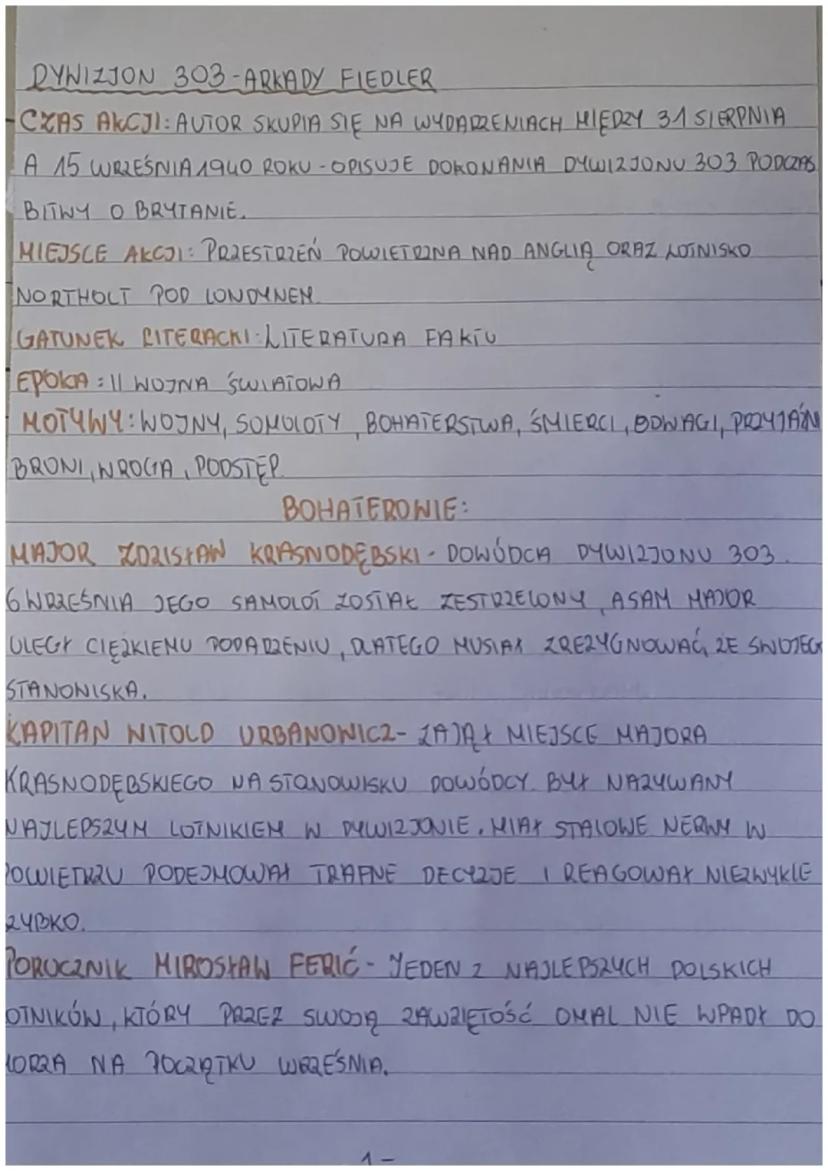 DYWIZJON 303 - ARKADY FIEDLER
CZAS AKCJI: AUTOR SKUPIA SIĘ NA WYDARZENIACH MIĘDZY 31 SIERPNIA
A 15 WRZEŚNIA 1940 ROKU - OPISUJE DOKONANIA DYWIZJONU 303 PODCZAS
BITWY O BRYTANIE.
MIEJSCE AKCJI: PRZESTRZEŃ POWIETRZNA NAD ANGLIĄ ORAZ LOTNISKO
NORTHOLT POD LONDYNEM
GATUNEK LITERACKI: LITERATURA FAKTU
EPOKA: II WOJNA ŚWIATOWA
MOTYWY: WOJNY, SOMOLOTY, BOHATERSTWA, ŚMIERCI, ODWAGI, PRZYJAŹN
BRONI, WROGA, PODSTĘP.
BOHATEROWIE:
MAJOR ZDZISŁAW KRASNODĘBSKI - DOWÓDCA DYWIZJONU 303.
6 WRZEŚNIA JEGO SAMOLOT ZOSTAŁ ZESTRZELONY, A SAM MAJOR
ULEGŁ CIĘŻKIEMU POPARZENIU, DLATEGO MUSIAŁ ZREZYGNOWAĆ, ZE SWOJEG
STANOWISKA.
KAPITAN WITOLD URBANOWICZ - ZAJĄŁ MIEJSCE MAJORA
KRASNODĘBSKIEGO NA STANOWISKU DOWÓDCY. BYŁ NAZYWANY
NAJLEPSZYM LOTNIKIEM W DYWIZJONIE. MIAŁ STALOWE NERWY W
POWIETRZU PODEJMOWAŁ TRAFNE DECYZJE I REAGOWAŁ NIEZWYKLE
ZYBKO.
PORUCZNIK MIROSŁAW FERIĆ - JEDEN Z NAJLEPSZYCH POLSKICH
OTNIKÓW, KTÓRY PRZEZ SWOJĄ ZAWZIĘTOŚĆ OMAL NIE WPADŁ DO
MORZA NA POCZĄTKU WRZEŚNIA.
1 -